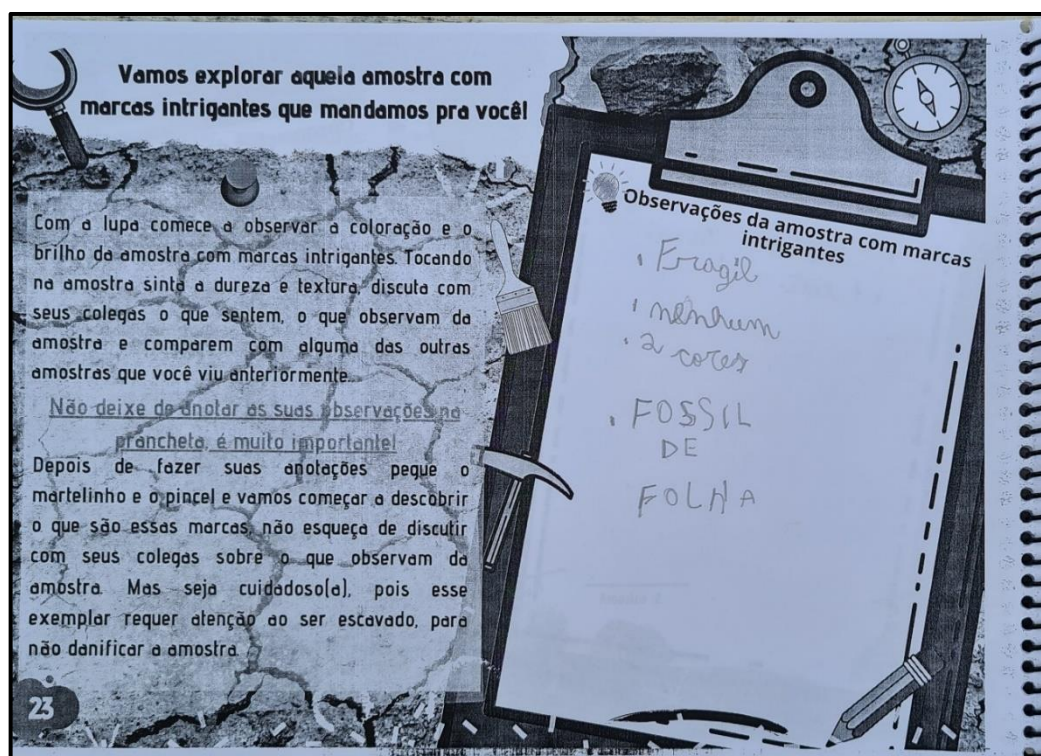 Vamos explorar aquela amostra com
marcas intrigantes que mandamos pra você!
Com a lupa comece a observar a coloração e o
brilho da amostra com marcas intrigantes. Tocando
na amostra sinta a dureza e textura, discuta com
seus colegas o que sentem, o que observam da
amostra e comparem com alguma das outras
amostras que você viu anteriormente.
Não deixe de anotar as suas observações na
prancheta, é muito importante!
Depois de fazer suas anotações pegue o
martelinho e o pincel e vamos começar a descobrir
o que são essas marcas, não esqueça de discutir
com seus colegas sobre o que observam da
amostra. Mas seja cuidadoso(a), pois esse
exemplar requer atenção ao ser escavado, para
não danificar a amostra.
23
Observações da amostra com marcas
intrigantes
. Fragil
. nenhum
. 2 cores
. FOSSIL
DE
FOLHA